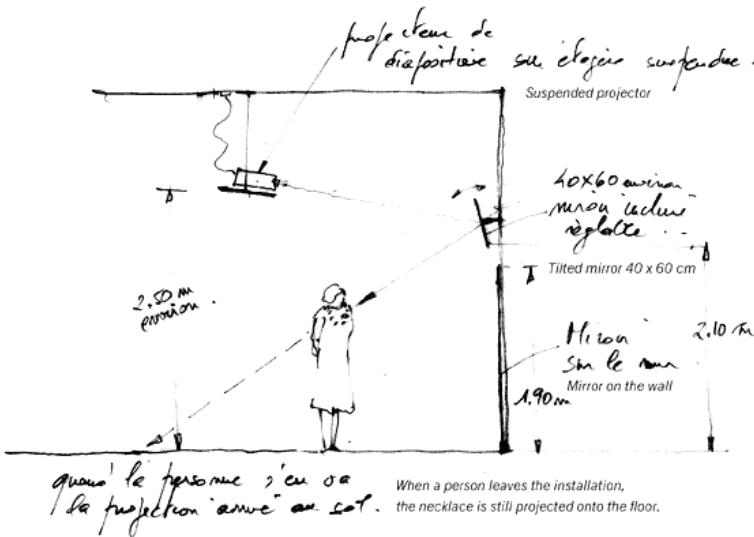 projecteur de
diapositive sur étagère suspendue.
Suspended projector
40x60 environ
miroir incliné
réglable ...
Tilted mirror 40 x 60 cm
2.50 m
environ.
2.10 m
Miroir
sur le mur
Mirror on the wall
1.90 m
quand la personne s'en va
la projection arrive au sol.
When a person leaves the installation,
the necklace is still projected onto the floor.